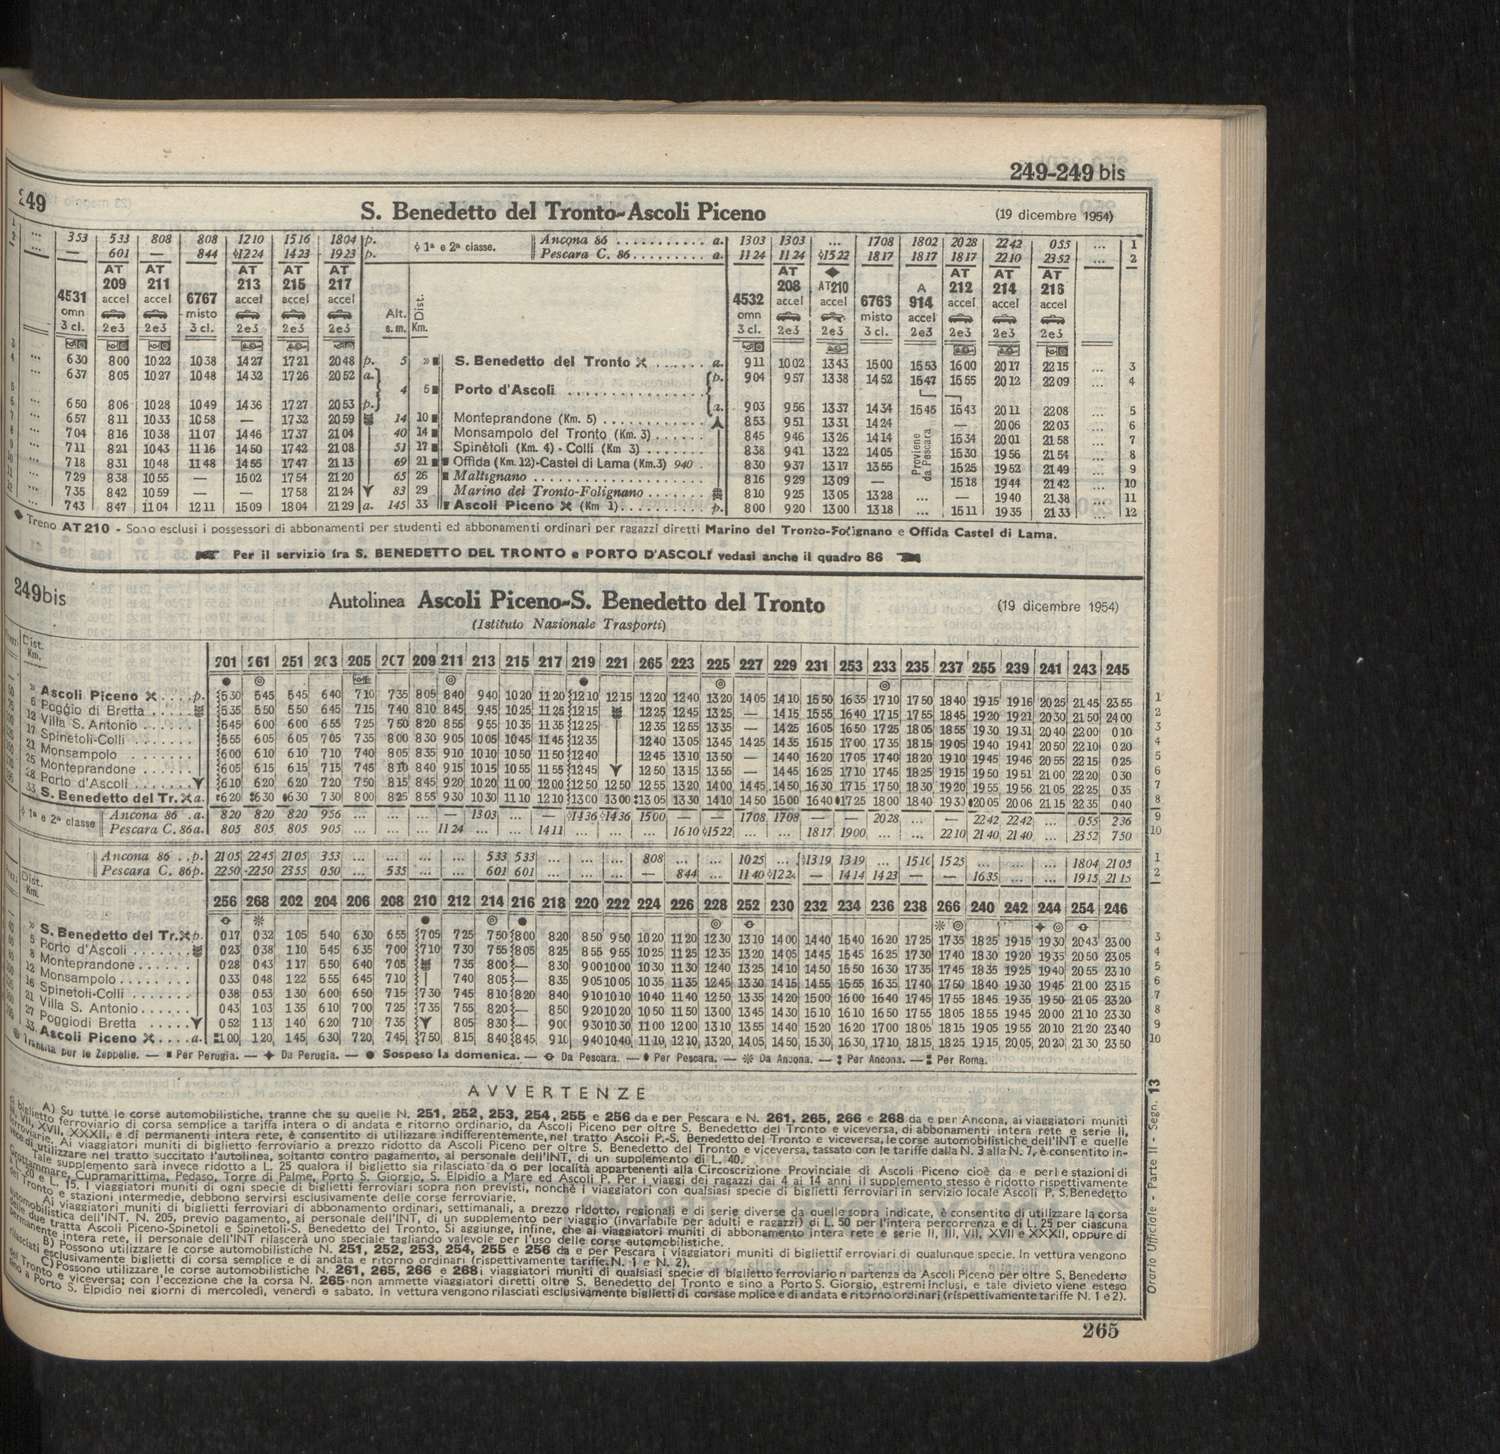 249-249 bis
249
S. Benedetto del Tronto-Ascoli Piceno
(19 dicembre 1954)
1 ... 353 533 808 808 1210 1516 1804 p. ◊ 1ª e 2ª classe. Ancona 86 . . . . . . . . . . . a. 1303 1303 ... 1708 1802 2028 2242 055 ... 1
2 ... — 601 — 844 ◊1224 1423 1923 p. Pescara C. 86 . . . . . . . . . a. 1124 1124 ◊1522 1817 1817 1817 2210 2352 ... 2
AT AT AT AT AT AT ◆ AT AT AT
209 211 213 215 217 208 AT210 A 212 214 216
4531 accel accel 6767 accel accel accel Alt. Dist. 4532 accel accel 6763 914 accel accel accel
omn misto omn misto accel
3 cl. 2e3 2e3 3 cl. 2e3 2e3 2e3 s.m. Km. 3 cl. 2e3 2e3 3 cl. 2e3 2e3 2e3 2e3
630 800 1022 1038 1427 1721 2048 p. 5 » S. Benedetto del Tronto . . . . . . a. 911 1002 1343 1500 1553 1600 2017 2215 ... 3
637 805 1027 1048 1432 1726 2052 a. p. 904 957 1338 1452 1547 1555 2012 2209 ... 4
4 5 Porto d'Ascoli . . . . . . . . . . . . . .
650 806 1028 1049 1436 1727 2053 p. a. 903 956 1337 1434 1545 1543 2011 2208 ... 5
657 811 1033 1058 — 1732 2059 14 10 Monteprandone (Km. 5) . . . . . . . . . . 853 951 1331 1424 — 2006 2203 ... 6
704 816 1038 1107 1446 1737 2104 40 14 Monsampolo del Tronto (Km. 3) . . . . . . 845 946 1326 1414 Proviene da Pescara 1534 2001 2158 ... 7
711 821 1043 1116 1450 1742 2108 53 17 Spinétoli (Km. 4) - Colli (Km 3) . . . . . . 838 941 1322 1405 1530 1956 2154 ... 8
718 831 1048 1148 1455 1747 2113 69 21 Offida (Km. 12)-Castel di Lama (Km.3) 940 . 830 937 1317 1355 1525 1952 2149 ... 9
729 838 1055 — 1502 1754 2120 65 26 Maltignano . . . . . . . . . . . . . . . . . 816 929 1309 — 1518 1944 2142 ... 10
735 842 1059 — — 1758 2124 83 29 Marino del Tronto-Folignano . . . . . . 810 925 1305 1328 ... — 1940 2138 ... 11
743 847 1104 1211 1509 1804 2129 a. 145 33 Ascoli Piceno (Km 1) . . . . . . . . . p. 800 920 1300 1318 ... 1511 1935 2133 ... 12
◆ Treno AT 210 - Sono esclusi i possessori di abbonamenti per studenti ed abbonamenti ordinari per ragazzi diretti Marino del Tronto-Folignano e Offida Castel di Lama.
Per il servizio fra S. BENEDETTO DEL TRONTO e PORTO D'ASCOLI vedasi anche il quadro 86
249bis
Autolinea Ascoli Piceno-S. Benedetto del Tronto
(19 dicembre 1954)
(Istituto Nazionale Trasporti)
Dist. Km. 201 261 251 203 205 207 209 211 213 215 217 219 221 265 223 225 227 229 231 253 233 235 237 255 239 241 243 245
» Ascoli Piceno . . . . p. 530 545 545 640 710 735 805 840 940 1020 1120 1210 1215 1220 1240 1320 1405 1410 1550 1635 1710 1750 1840 1915 1916 2025 2145 2355 1
6 Poggio di Bretta . . . . . 535 550 550 645 715 740 810 845 945 1025 1125 1215 1225 1245 1325 — 1415 1555 1640 1715 1755 1845 1920 1921 2030 2150 2400 2
12 Villa S. Antonio . . . . . . 545 600 600 655 725 750 820 855 955 1035 1135 1225 1235 1255 1335 — 1425 1605 1650 1725 1805 1855 1930 1931 2040 2200 010 3
17 Spinetoli-Colli . . . . . . . 555 605 605 705 735 800 830 905 1005 1045 1145 1235 1240 1305 1345 1425 1435 1615 1700 1735 1815 1905 1940 1941 2050 2210 020 4
21 Monsampolo . . . . . . . 600 610 610 710 740 805 835 910 1010 1050 1150 1240 1245 1310 1350 — 1440 1620 1705 1740 1820 1910 1945 1946 2055 2215 025 5
25 Monteprandone . . . . . . 605 615 615 715 745 810 840 915 1015 1055 1155 1245 1250 1315 1355 — 1445 1625 1710 1745 1825 1915 1950 1951 2100 2220 030 6
28 Porto d'Ascoli . . . . . . 610 620 620 720 750 815 845 920 1020 1100 1200 1250 1250 1255 1320 1400 1445 1450 1630 1715 1750 1830 1920 1955 1956 2105 2225 035 7
33 S. Benedetto del Tr. a. 620 630 630 730 800 825 855 930 1030 1110 1210 1300 1300 1305 1330 1410 1450 1500 1640 1725 1800 1840 1930 2005 2006 2115 2235 040 8
◊ 1ª e 2ª classe Ancona 86 . a. 820 820 820 956 ... ... ... — 1303 ... — ◊1436 ◊1436 1500 ... — 1708 1708 — ... 2028 ... — 2242 2242 ... 055 236 9
Pescara C. 86 a. 805 805 805 905 ... ... ... 1124 ... ... 1411 ... ... ... 1610 ◊1522 ... ... 1817 1900 ... ... 2210 2140 2140 ... 2352 750 10
Ancona 86 . . p. 2105 2245 2105 353 ... ... ... ... 533 533 ... ... ... 808 ... ... 1025 ... ◊1319 1319 ... 1516 1525 ... ... ... 1804 2105 1
Pescara C. 86 p. 2250 2250 2355 050 ... 535 ... ... 601 601 ... ... ... — 844 ... 1140 ◊1224 — 1414 1423 — — 1635 ... ... 1915 2115 2
Dist. Km. 256 268 202 204 206 208 210 212 214 216 218 220 222 224 226 228 252 230 232 234 236 238 266 240 242 244 254 246
» S. Benedetto del Tr. p. 017 032 105 540 630 655 705 725 750 800 820 850 950 1020 1120 1230 1310 1400 1440 1540 1620 1725 1735 1825 1915 1930 2043 2300 3
5 Porto d'Ascoli . . . . . . 023 038 110 545 635 700 710 730 755 805 825 855 955 1025 1125 1235 1320 1405 1445 1545 1625 1730 1740 1830 1920 1935 2050 2305 4
8 Monteprandone . . . . . . 028 043 117 550 640 705 735 800 — 830 900 1000 1030 1130 1240 1325 1410 1450 1550 1630 1735 1745 1835 1925 1940 2055 2310 5
12 Monsampolo . . . . . . . 033 048 122 555 645 710 740 805 — 835 905 1005 1035 1135 1245 1330 1415 1455 1555 1635 1740 1750 1840 1930 1945 2100 2315 6
16 Spinetoli-Colli . . . . . . . 038 053 130 600 650 715 730 745 810 820 840 910 1010 1040 1140 1250 1335 1420 1500 1600 1640 1745 1755 1845 1935 1950 2105 2320 7
21 Villa S. Antonio . . . . . . 043 103 135 610 700 725 735 755 820 — 850 920 1020 1050 1150 1300 1345 1430 1510 1610 1650 1755 1805 1855 1945 2000 2110 2330 8
27 Poggiodi Bretta . . . . . 052 113 140 620 710 735 805 830 — 900 930 1030 1100 1200 1310 1355 1440 1520 1620 1700 1805 1815 1905 1955 2010 2120 2340 9
33 Ascoli Piceno . . . . a. 100 120 145 630 720 745 750 815 840 845 910 940 1040 1110 1210 1320 1405 1450 1530 1630 1710 1815 1825 1915 2005 2020 2130 2350 10
Transita per le Zeppelle. — Per Perugia. — Da Perugia. — ● Sospeso la domenica. — Da Pescara. — Per Pescara. — Da Ancona. — Per Ancona. — Per Roma.
AVVERTENZE
A) Su tutte le corse automobilistiche, tranne che su quelle N. 251, 252, 253, 254, 255 e 256 da e per Pescara e N. 261, 265, 266 e 268 da e per Ancona, ai viaggiatori muniti
di biglietto ferroviario di corsa semplice a tariffa intera o di andata e ritorno ordinario, da Ascoli Piceno per oltre S. Benedetto del Tronto e viceversa, di abbonamenti intera rete e serie II,
III, VII, XVII, XXXII, e di permanenti intera rete, è consentito di utilizzare indifferentemente, nel tratto Ascoli P.-S. Benedetto del Tronto e viceversa, le corse automobilistiche dell'INT e quelle
ferroviarie. Ai viaggiatori muniti di biglietto ferroviario a prezzo ridotto da Ascoli Piceno per oltre S. Benedetto del Tronto e viceversa, tassato con le tariffe dalla N. 3 alla N. 7, è consentito in-
vece di utilizzare nel tratto succitato l'autolinea, soltanto contro pagamento, al personale dell'INT, di un supplemento di L. 40.
Tale supplemento sarà invece ridotto a L. 25 qualora il biglietto sia rilasciato da o per località appartenenti alla Circoscrizione Provinciale di Ascoli Piceno cioè da e per le stazioni di
Grottammare, Cupramarittima, Pedaso, Torre di Palme, Porto S. Giorgio, S. Elpidio a Mare ed Ascoli P. Per i viaggi dei ragazzi dai 4 ai 14 anni il supplemento stesso è ridotto rispettivamente
a L. 20 e L. 15. I viaggiatori muniti di ogni specie di biglietti ferroviari sopra non previsti, nonchè i viaggiatori con qualsiasi specie di biglietti ferroviari in servizio locale Ascoli P. S. Benedetto
del Tronto e stazioni intermedie, debbono servirsi esclusivamente delle corse ferroviarie.
A) Viaggiatori muniti di biglietti ferroviari di abbonamento ordinari, settimanali, a prezzo ridotto, regionali e di serie diverse da quelle sopra indicate, è consentito di utilizzare la corsa
automobilistica dell'INT. N. 205, previo pagamento, al personale dell'INT, di un supplemento per viaggio (invariabile per adulti e ragazzi) di L. 50 per l'intera percorrenza e di L. 25 per ciascuna
delle due tratta Ascoli Piceno-Spinetoli e Spinetoli-S. Benedetto del Tronto. Si aggiunge, infine, che ai viaggiatori muniti di abbonamento intera rete e serie II, III, VII, XVII e XXXII, oppure di
permanente intera rete, il personale dell'INT rilascerà uno speciale tagliando valevole per l'uso delle corse automobilistiche.
B) Possono utilizzare le corse automobilistiche N. 251, 252, 253, 254, 255 e 256 da e per Pescara i viaggiatori muniti di biglietti ferroviari di qualunque specie. In vettura vengono
rilasciati esclusivamente biglietti di corsa semplice e di andata e ritorno ordinari (rispettivamente tariffe N. 1 e N. 2).
C) Possono utilizzare le corse automobilistiche N. 261, 265, 266 e 268 i viaggiatori muniti di qualsiasi specie di biglietto ferroviario n partenza da Ascoli Piceno per oltre S. Benedetto
del Tronto e viceversa; con l'eccezione che la corsa N. 265 non ammette viaggiatori diretti oltre S. Benedetto del Tronto e sino a Porto S. Giorgio, estremi inclusi, e tale divieto viene esteso
sino a Porto S. Elpidio nei giorni di mercoledì, venerdì e sabato. In vettura vengono rilasciati esclusivamente biglietti di corsa semplice e di andata e ritorno ordinari (rispettivamente tariffe N. 1 e 2).
Orario Ufficiale - Parte II - Segn. 13
265